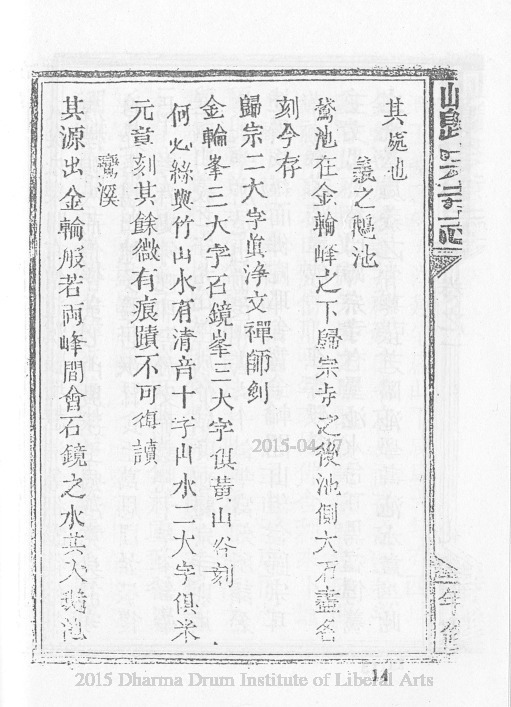 其處也
羲之鵝池
鵞池在金輪峰之下歸宗寺之後池側大石盡名
刻今存
歸宗二大字眞浄文禪師刻
金輪峯三大字石鏡峯三大字俱黄山谷刻
何必絲與竹山水有清音十字山水二大字俱米
元章刻其餘微有痕蹟不可復讀
鸞溪
其源出金輪般若両峰間會石鏡之水其入鵞池
2015-04-17
14
2015 Dharma Drum Institute of Liberal Arts